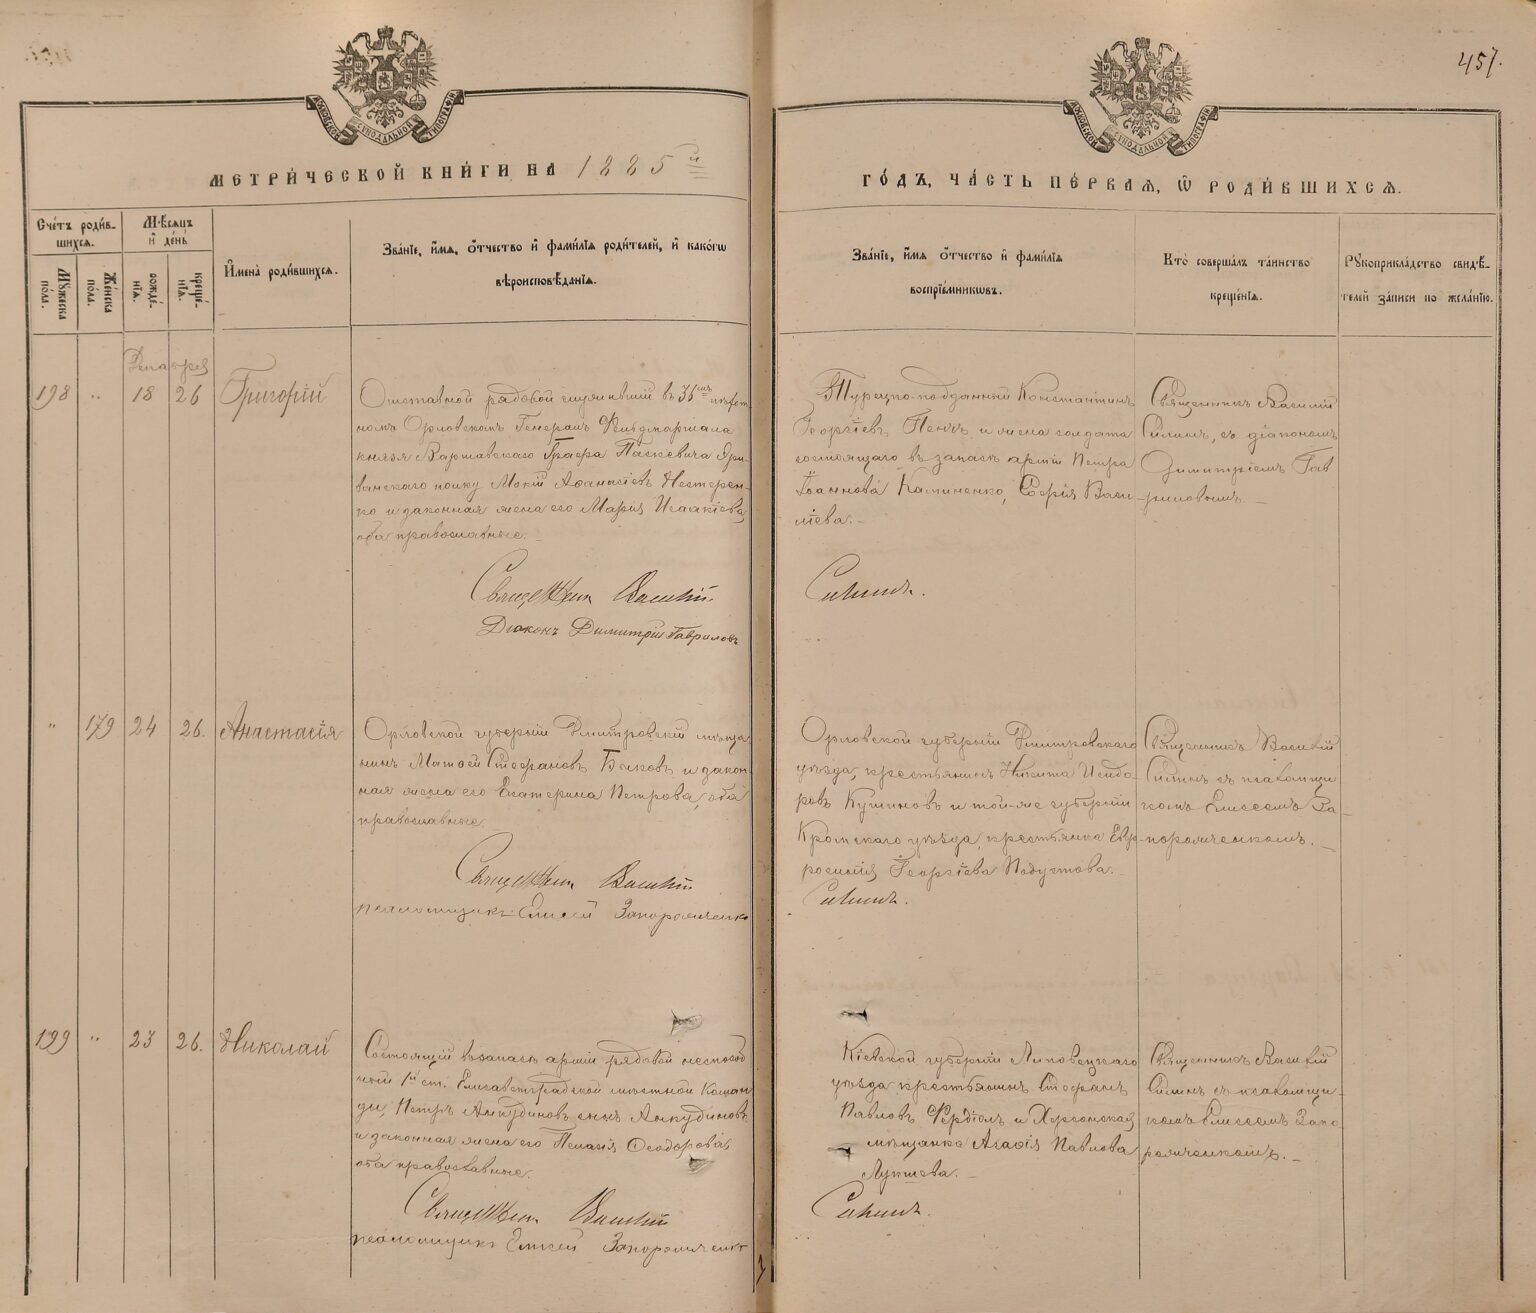 457.
МОСКОВСКОЙ СѴНОДАЛЬНОЙ ТИПОГРАФІИ
МОСКОВСКОЙ СѴНОДАЛЬНОЙ ТИПОГРАФІИ
МЕТРИ́ЧЕСКОЙ КНИ́ГИ НА 1885й
ГО́ДЪ, ЧА́СТЬ ПЕ́РВАѦ, Ѡ҆ РОДИ́ВШИХСѦ.
Сче́тъ роди́в-
шихсѧ.
Мѣ́сѧцъ
и҆ де́нь
Мꙋ́жеска по́ла.
Же́нска по́ла.
рожде́нїѧ.
креще́нїѧ.
И҆мена̀ роди́вшихсѧ.
Зва́нїе, и҆́мѧ, ѻ҆́тчество и҆ фами́лїѧ роди́телей, и҆ како́гѡ
вѣроисповѣ́данїѧ.
Зва́нїе, и҆́мѧ ѻ҆́тчество и҆ фами́лїѧ
воспрїе́мникѡвъ.
Кто̀ соверша́лъ та́инство
креще́нїѧ.
Рꙋкоприкла́дство свидѣ́-
телей за́писи по жела́нїю.
Декабря
198 " 18 26 Григорій
Отставной рядовой служившій въ 36мъ пѣхот-
номъ Орловскомъ Генералъ Фельдмаршала
князя Варшавскаго Графа Паскевича Эри-
ванскаго полку Мокій Аѳанасіевъ Нестерен-
ко и законная жена его Марія Исаакіева,
оба православные.
Священник Василій
Діаконъ Димитрій Гавриловъ
Турецко-подданный Константинъ
Георгіевъ Пенчъ и жена солдата
состоящаго въ запасѣ арміи Петра
Іоаннова Калиненко, Софія Васи-
ліева.
Силинъ.
Священникъ Василій
Силинъ, съ діакономъ
Димитріемъ Гав
риловымъ.
" 179 24 26. Анастасія
Орловской губерніи Дмитровскій мѣща-
нинъ Матѳей Стефановъ Быковъ и закон-
ная жена его Екатерина Петрова, оба
православные.
Священник Василій
псаломщикъ Елисей Запорожченко
Орловской губерніи Дмитровскаго
уѣзда, крестьянинъ Никита Исидо-
ровъ Кушиновъ и той-же губерніи
Кромскаго уѣзда, крестьянка Евф-
росинія Георгіева Подустова.
Силинъ.
Священникъ Василій
Силинъ съ псаломщи-
комъ Елисеемъ За-
порожченкомъ.
199 " 23 26. Николай
Состоящій въ запасѣ арміи рядовой неспособ
ный 1й ст. Елисаветградской мѣстной Коман
ды, Петръ Анкудиновъ сынъ Анкудиновъ
и законная жена его Пелагія Ѳеодорова,
оба православные.
Священник Василій
псаломщикъ Елисей Запорожченко
Кіевской губерніи Липовецкаго
уѣзда крестьянинъ Стефанъ
Павловъ и Херсонская
мѣщанка Агаѳія Павлова
Силинъ.
Священникъ Василій
Силинъ съ псаломщи-
комъ Елисеемъ Запо-
рожченкомъ.